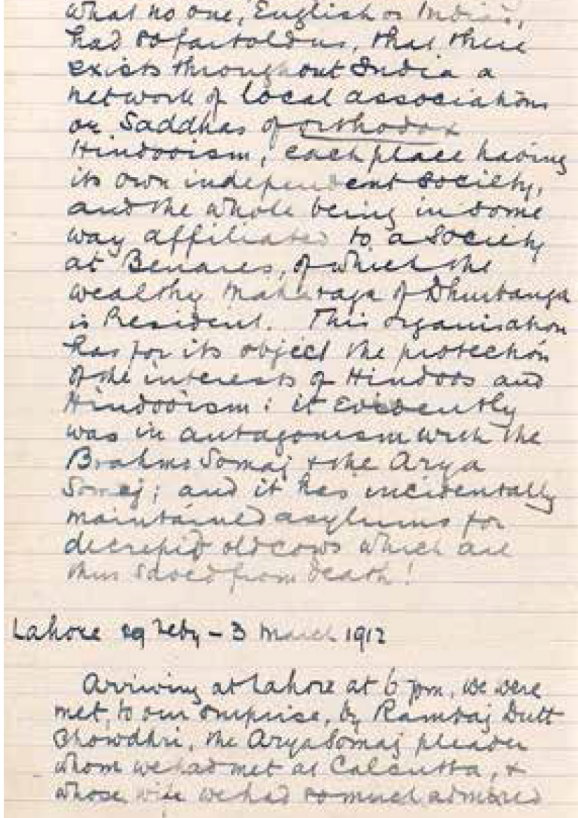 what no one, English or Indian,
had so far told us, that there
exists throughout India a
network of local associations
or Saddhas of orthodox
Hindooism, each place having
its own independent society,
and the whole being in some
way affiliated to a Society
at Benares, of which the
wealthy Maharaja of Dhurbanga
is President. This organisation
has for its object the protection
of the interests of Hindoos and
Hindooism: it evidently
was in antagonism with the
Brahmo Somaj & the Arya
Somaj; and it has incidentally
maintained asylums for
decrepid old cows which are
thus saved from death!
Lahore 29 Feby - 3 March 1912
Arriving at Lahore at 6 pm, we were
met, to our surprise, by Rambaj Dutt
Chowdhri, the Arya Somaj pleader
whom we had met at Calcutta, &
whose wife we had so much admired